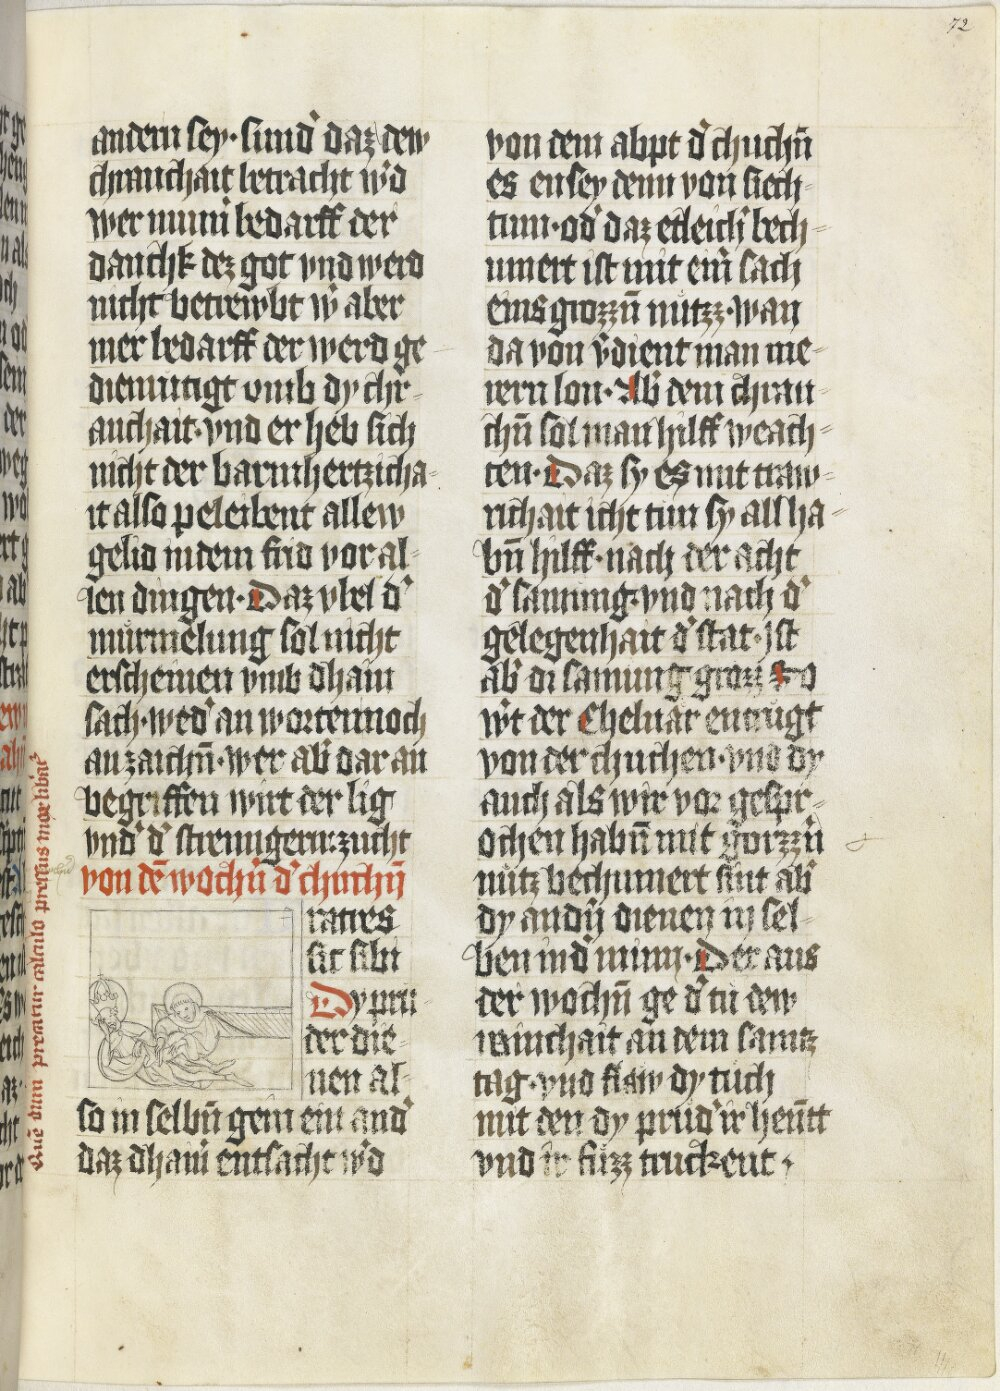 72
andern sey · sund̾ daz dew
chranchait betracht w̾d
wer minn̾ bedarff der
danchk dez got vnd werd
nicht betrewbt w̾ aber
mer bedarff der werd ge-
diemutigt vmb dy chr-
anchait · vnd er heb sich
nicht der barmhertzicha-
it also peleibent allew
gelid in dem frid vor al-
len dingen · Daz vbel d̾
murmelung sol nicht
erscheinen vmb dhain
sach · wed̾ an worten noch
an zaichn̄ · wer ab̾ dar an
begriffen wirt der lig
vnd̾ d̾ strenngern zucht
von dē wochn̄ d̾ chuchn̄
ratres
sic sibi
Dy pru-
der die-
nen al-
so in selbn̄ gein ein and̾
daz dhain̾ entsacht w̾d
von dem abpt d̾ chuchn̄
es en sey denn von siech-
tum · od̾ daz etleich̾ bech-
umert ist mit ein̄ sach
eins grozzn̄ nutzz · wan
da von v̾dient man me-
rern lon · Ab̾ dem chran-
chn̄ sol man hilff weach-
ten · Daz sy es mit traw-
richait icht tun sy all ha-
bn̄ hilff · nach der acht
d̾ samung · vnd nach d̾
gelegenhait d̾ stat · Ist
ab̾ di samung grozz So
w̾t der Chelnar entzugt
von der chuchen · vnd dy
auch als wir vor gespr-
ochen habn̄ mit gorzzn̄
nutz bechumert sint ab̾
dy andn̄ dienen in sel-
ben in d̾ minn · Der aus
der wochn̄ ge d̾ tu dew
rainchait an dem samtz
tag · vnd flaw dy tuch
mit den dy prud̾ ir hentt
vnd ir fuzz truckent ·